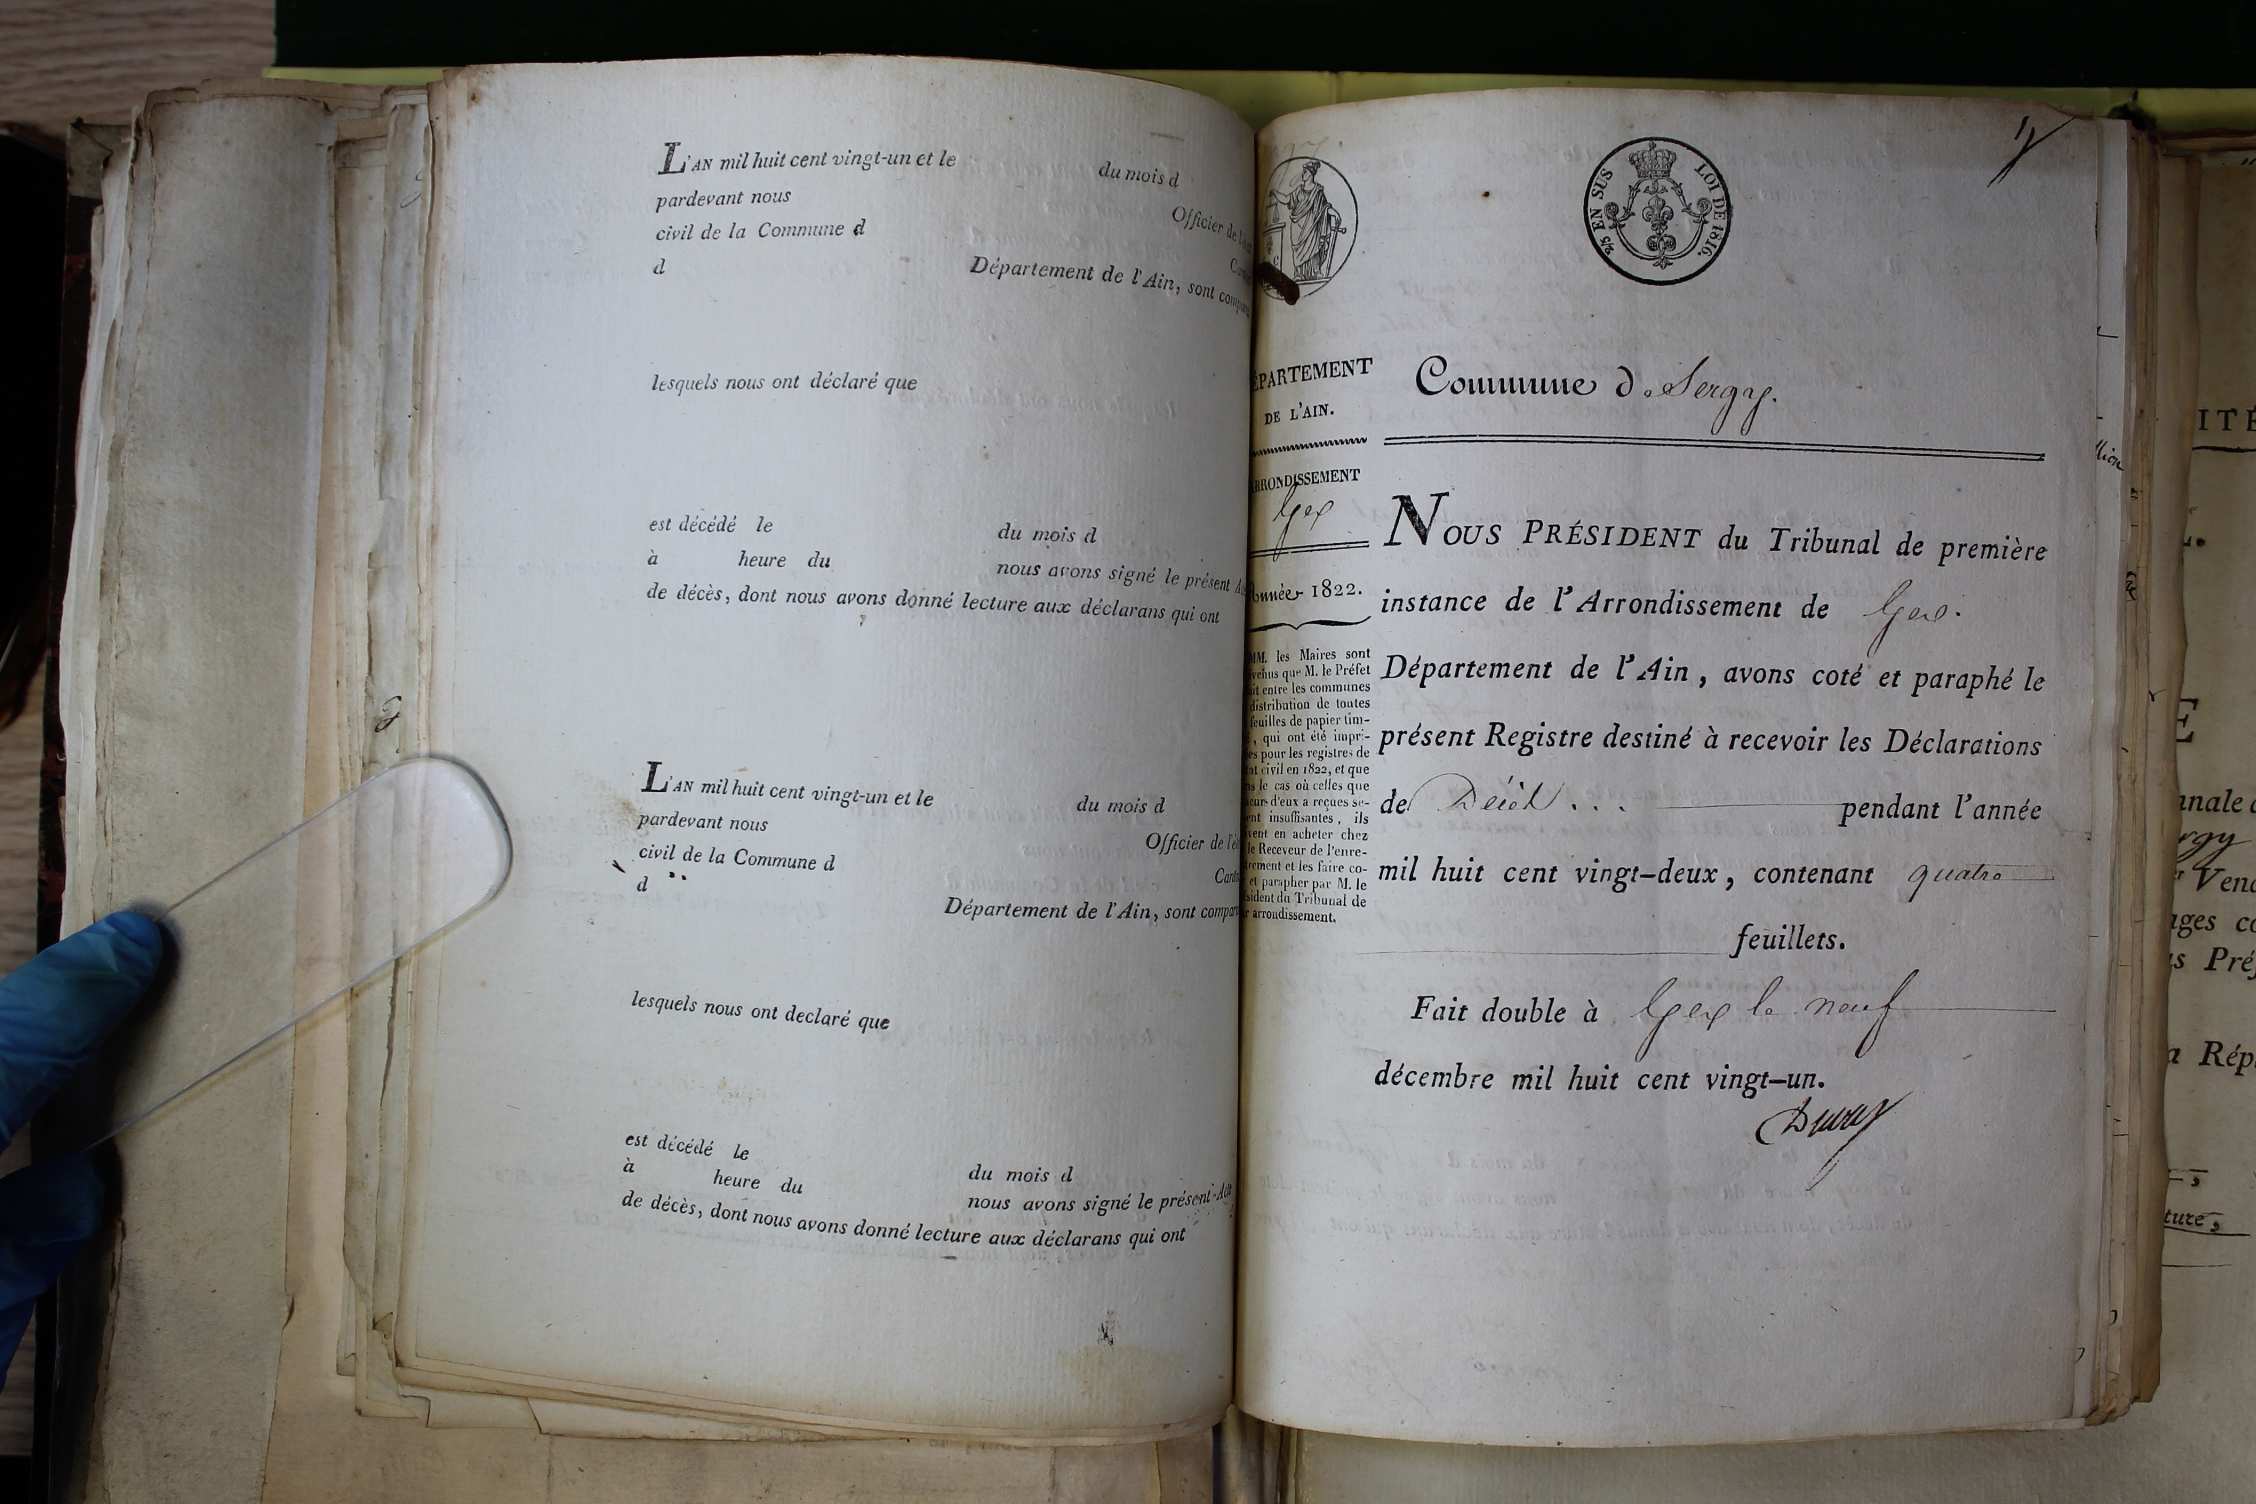 L'AN mil huit cent vingt-un et le du mois d
pardevant nous Officier de
civil de la Commune d
d Département de l'Ain, sont
lesquels nous ont déclaré que
est décédé le du mois d
à heure du nous avons signé le présent
de décès, dont nous avons donné lecture aux déclarans qui ont
L'AN mil huit cent vingt-un et le du mois d
pardevant nous Officier de
civil de la Commune d
d Département de l'Ain, sont
lesquels nous ont declaré que
est décédé le du mois d
à heure du nous avons signé le présent Acte
de décès, dont nous avons donné lecture aux déclarans qui ont
2/5 EN SUS LOI DE 1816.
ÉPARTEMENT
DE L'AIN.
ARRONDISSEMENT
Gex
Année 1822.
MM. les Maires sont
que M. le Préfet
entre les communes
distribution de toutes
feuilles de papier tim-
, qui ont été impri-
pour les registres de
civil en 1822, et que
le cas où celles que
d'eux a reçues se-
insuffisantes, ils
en acheter chez
le Receveur de l'enre-
et les faire co-
et parapher par M. le
du Tribunal de
arrondissement.
Commune de Sergy.
NOUS PRÉSIDENT du Tribunal de première
instance de l'Arrondissement de Gex.
Département de l'Ain, avons coté et paraphé le
présent Registre destiné à recevoir les Déclarations
de Décès ... pendant l'année
mil huit cent vingt-deux, contenant quatre
feuillets.
Fait double à Gex le neuf
décembre mil huit cent vingt-un.